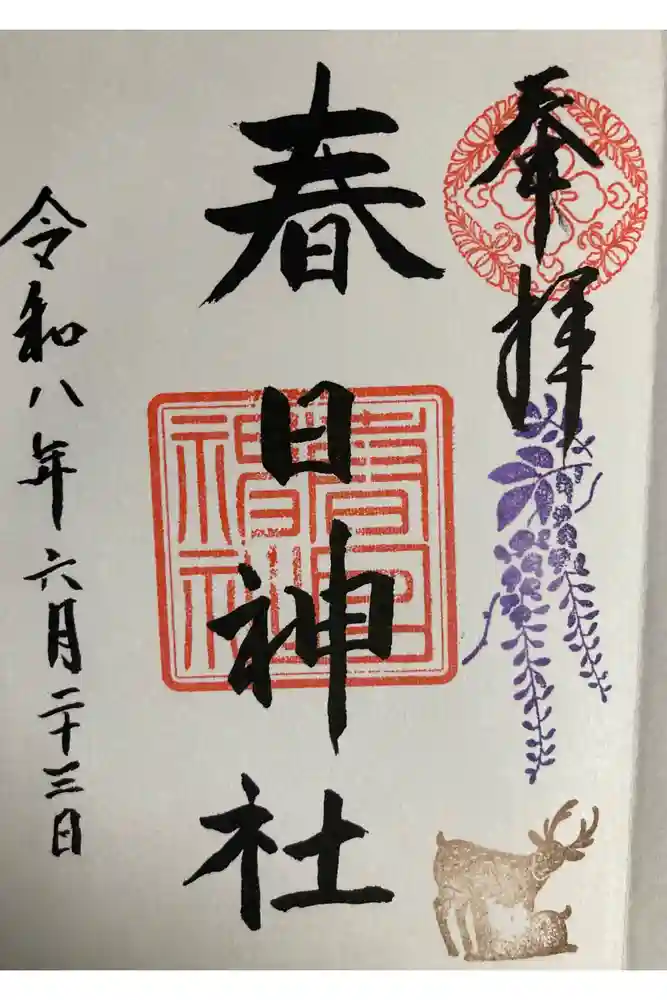 奉拝
春日神社
春日
神社
令和八年六月二十三日